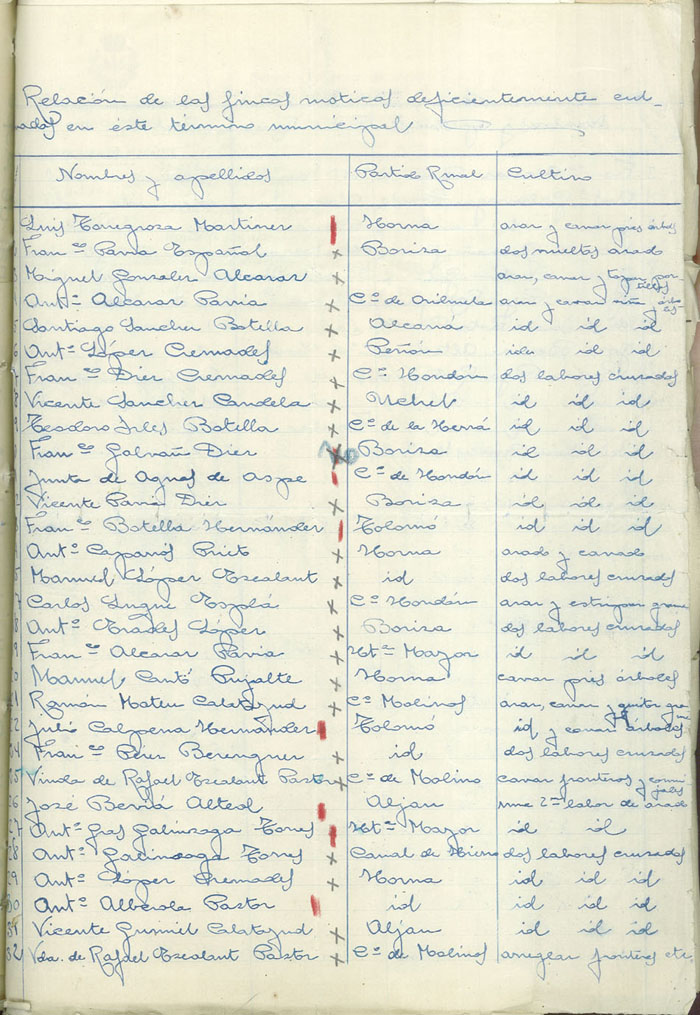 Relación de las fincas rústicas deficientemente cul-
vadas en éste término municipal
Nombres y apellidos Partido Rural Cultivo
Luis Torregroza Martinez Horna arar y cavar pies árboles
Fran.co Pavia Español Boriza dos vueltas arado
Miguel Gonzalez Alcaraz arar, cavar y tapar portillos
Ant.o Alcaraz Pavia C.o de Orihuela arar y cavar
5 Santiago Sanchez Botella Alcaná id id id
6 Ant.o López Cremades Peñón id id id
7 Fran.co Diez Cremades C.o Hondón dos labores cruzados
8 Vicente Sanchez Candela Uchel id id id
9 Teodoro Botella C.o de la id id id
Fran.co Galvañ Diez NO Boriza id id id
Junta de Aguas de Aspe C.o de Hondón id id id
2 Vicente Pavia Diez Boriza id id id
3 Fran.co Botella Hernández Tolomó id id id
Ant.o Caparrós Prieto Horna arado y cavado
5 Manuel López Escalant id dos labores cruzados
7 Carlos Luque Esplá C.o Hondón arar y
8 Ant.o Prades López Boriza dos labores cruzados
9 Fran.co Alcaraz Pavia Ht.a Mayor id id id
0 Manuel Cantó Pujalte Horna cavar pies árboles
21 Ramón Mateu Calatayud C.o Molinos arar, cavar y quitar
2 Julio Calpena Hernández Tolomó id y cavar árboles
24 Fran.co Pérez Berenguer id dos labores cruzados
25 Viuda de Rafael Escalant Pastor C.o de Molino cavar fronteros y
26 José Berná Alted Aljau una 2.a labor de arado
27 Ant.o Gras Galinzaga Torres Ht.a Mayor id id
28 Ant.o Galinzaga Torres Canal de Hierro dos labores cruzados
29 Ant.o López Cremades Horna id id id
30 Ant.o Alberola Pastor id id id id
31 Vicente Gumiel Calatayud Aljau id id id
32 Vda. de Rafael Escalant Pastor C.o de Molinos arreglar fronteros etc.